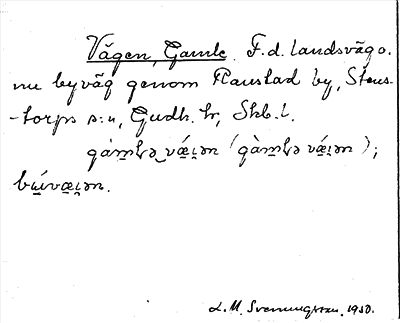 Vägen, Gamle. F.d. landsväg o.
nu byväg genom Raustad by, Stens-
-torps s:n, Gudh. h., Skb. l.
gàm̥łə vǽi̯ən (gàm̥łə vǽi̯ən);
bẃ́væi̯ən.
L. M. Svenungsson. 1930.